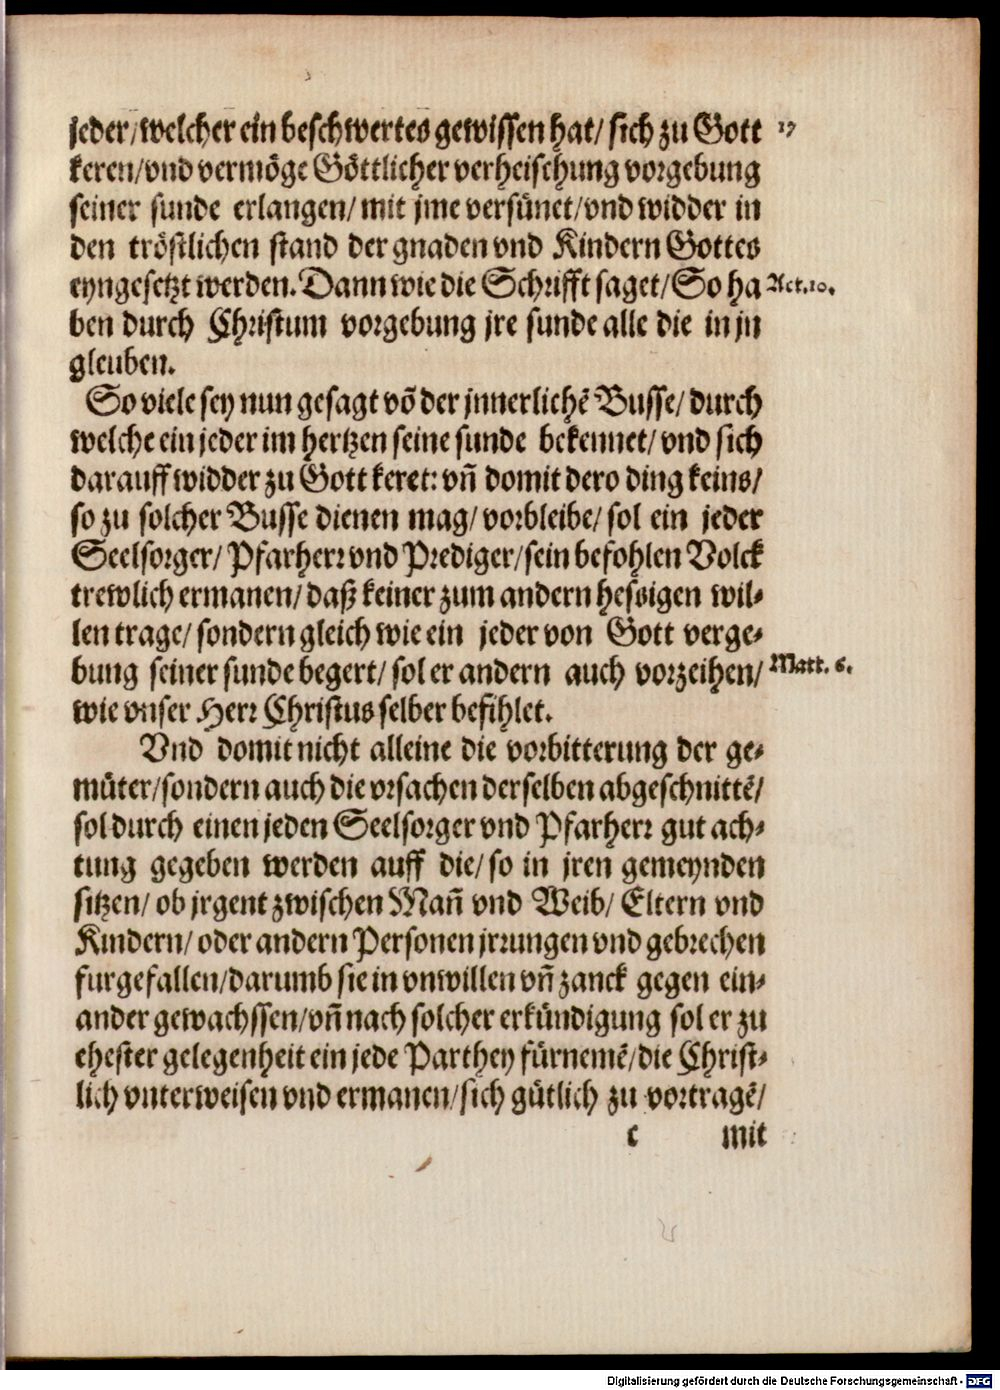 jeder/welcher ein beschwertes gewissen hat/ sich zu Gott 17
keren/vnd vermöge Göttlicher verheischung vorgebung
seiner sunde erlangen/ mit jme versünet/vnd widder in
den tröstlichen stand der gnaden vnd Kindern Gottes
eyngesetzt werden. Dann wie die Schrifft saget/ So ha Act.10.
ben durch Christum vorgebung jre sunde alle die in jn
gleuben.
So viele sey nun gesagt võ der jnnerlichẽ Busse/ durch
welche ein jeder im hertzen seine sunde bekennet/ vnd sich
darauff widder zu Gott keret: vñ domit dero ding keins/
so zu solcher Busse dienen mag/ vorbleibe/ sol ein jeder
Seelsorger/ Pfarherr vnd Prediger/sein befohlen Volck
trewlich ermanen/ daß keiner zum andern hessigen wil-
len trage/ sondern gleich wie ein jeder von Gott verge-
bung seiner sunde begert/ sol er andern auch vorzeihen/ Matt. 6.
wie vnser Herr Christus selber befihlet.
Vnd domit nicht alleine die vorbitterung der ge-
müter/sondern auch die vrsachen derselben abgeschnittẽ/
sol durch einen jeden Seelsorger vnd Pfarherr gut ach-
tung gegeben werden auff die/ so in jren gemeynden
sitzen/ ob jrgent zwischen Mañ vnd Weib/ Eltern vnd
Kindern/ oder andern Personen jrrungen vnd gebrechen
furgefallen/darumb sie in vnwillen vñ zanck gegen ein-
ander gewachssen/vñ nach solcher erkündigung sol er zu
ehester gelegenheit ein jede Parthey fürnemẽ/die Christ-
lich vnterweisen vnd ermanen/sich gütlich zu vortragẽ/
c mit
Digitalisierung gefördert durch die Deutsche Forschungsgemeinschaft - DFG